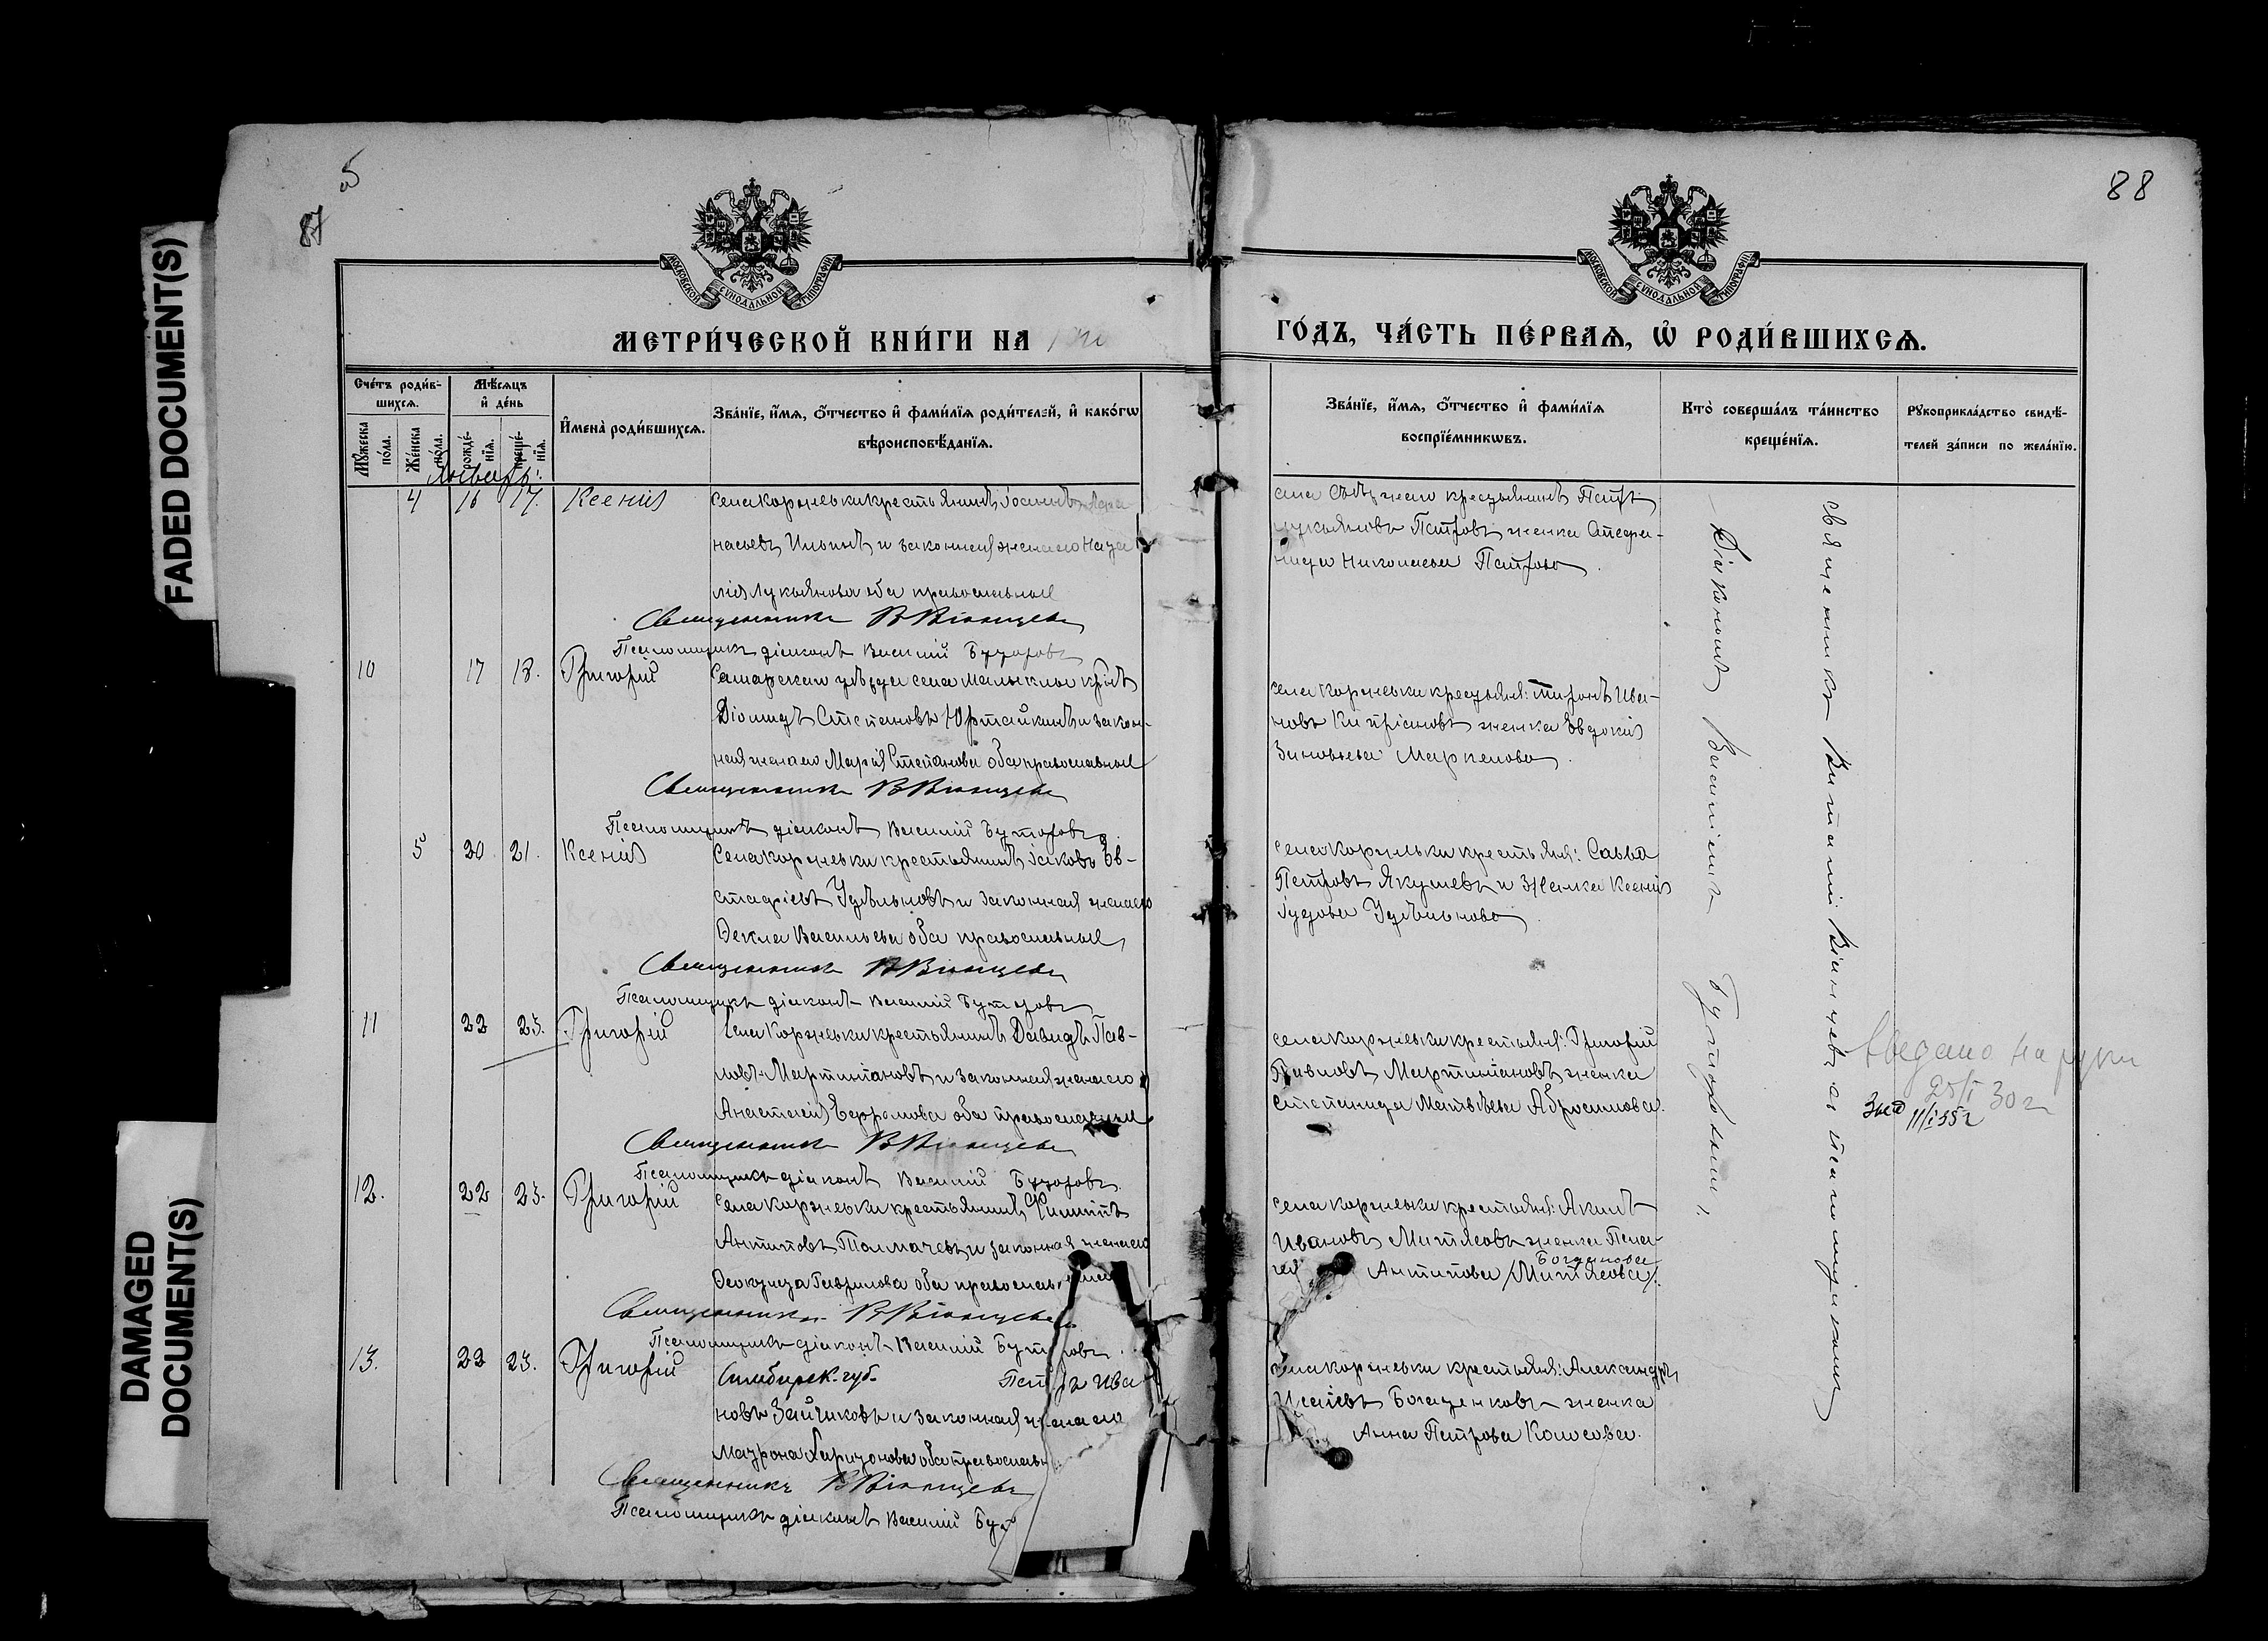 FADED DOCUMENT(S)
DAMAGED
DOCUMENT(S)
5
87
88
МОСКОВСКОЙ СѴНОДАЛЬНОЙ ТИПОГРАФІИ
МОСКОВСКОЙ СѴНОДАЛЬНОЙ ТИПОГРАФІИ
МЕТРИ́ЧЕСКОЙ КНИ́ГИ НА
ГО́ДЪ, ЧА́СТЬ ПЕ́РВАѦ, Ѡ҆ РОДИ́ВШИХСѦ.
Сче́тъ роди́в-
шихсѧ.
Мꙋ́жеска
по́ла.
Же́нска
по́ла.
Мѣ́сѧцъ
и҆ де́нь
рожде́-
нїѧ.
креще́-
нїѧ.
И҆мена̀ роди́вшихсѧ.
Зва́нїе, и҆́мѧ, ѻ҆́тчество и҆ фами́лїѧ роди́телей, и҆ како́гѡ
вѣроисповѣ́данїѧ.
Зва́нїе, и҆́мѧ, ѻ҆́тчество и҆ фами́лїѧ
воспрїе́мникѡвъ.
Кто̀ соверша́лъ та́инство
креще́нїѧ.
Рꙋкоприкла́дство свидѣ́-
телей за́писи по жела́нїю.
Январь.
4 16 17. Ксенія
села Коржевки крестьянинъ Іоаннъ
насьевъ Ильинъ и законная жена его Ната
лія Лукьянова оба православные
Священникъ В Віанцевъ
Псаломщикъ діаконъ Василій Буторовъ
крестьянинъ Петръ
Лукьяновъ Петровъ женка Стефа-
нида Николаева Петрова
10 17 18. Григорій
Самарскаго уѣзда села
Діомидъ Степановъ Юртайкинъ и закон-
ная жена его Марія Степанова оба православные
Священникъ В Віанцевъ
Псаломщикъ діаконъ Василій Буторовъ
села Коржевки крестьян: Миронъ Ива-
новъ Кипріановъ женка Евдокія
Зиновьева Маркелова
5 20 21. Ксенія
Села Коржевки крестьянинъ Іаковъ Ев-
стафіевъ Удѣльновъ и законная жена его
Ѳекла Васильева оба православные
Священникъ В Віанцевъ
Псаломщикъ діаконъ Василій Буторовъ
села Коржевки крестьян: Савва
Петровъ Якушевъ и женка Ксенія
Іудова Удѣльнова
11 22 23. Григорій
села Коржевки крестьянинъ Давидъ Пав-
ловъ Мартиніановъ и законная жена его
Анастасія Ефремова оба православные
Священникъ В Віанцевъ
Псаломщикъ діаконъ Василій Буторовъ
села Коржевки крестьян: Григорій
Павловъ Мартиніановъ женка
Степанида Матвѣева Абросимова.
на руки
25/I 30 г
11/I 35 г
12. 22 23. Григорій
села Коржевки крестьянинъ Филиппъ
Антиповъ Толмачевъ и законная жена его
Ѳеоктиста Гаврилова оба православные
Священникъ В Віанцевъ
Псаломщикъ діаконъ Василій Буторовъ
села Коржевки крестьян: Акимъ
Ивановъ Митяевъ женка Пела-
гея Антипова Богданова (Митяева).
13. 22 23. Григорій
Симбирск. губ. Петръ Ива
новъ Зайчиковъ и законная жена его
Матрона Харитонова оба православны
Священникъ В Віанцевъ
Псаломщикъ діаконъ Василій Бут
села Коржевки крестьян: Александръ
Исаіевъ женка
Анна Петрова Колосова.
Священникъ Виталій Віанцевъ съ псаломщикомъ
Діакономъ Василіемъ Буторовымъ.